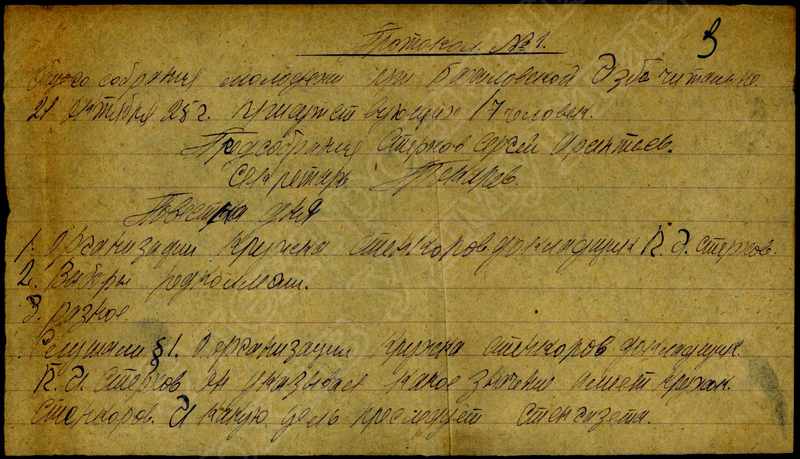 Протокол №1.
9
собрания молодежи при Избе читальне.
21 октября 25 г. присутствующих 17 человек.
Предсобрания Стерхов Сергей
Секретарь
Повестка дня
1. Организации кружка стенкоров докладчик Стерхов.
2. Выборы редколлегии.
3. разное
Слушали §1. Организации кружка стенкоров докладчик
Стерхов он указывает какое значение имеет кружок
стенкоров. И какую цель преследует стенгазета.